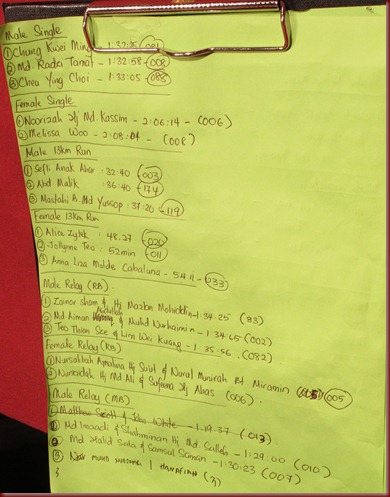 Male Single
① Chung Kwei Ming 1:32:25 (081)
② Md. Rada Tanat - 1:32:58 - (008)
③ Chea Ying Choi - 1:33:05 - (088)
Female Single
① Noorizah Hj Md Kassim - 2:06:14 - (006)
② Melissa Woo - 2:08:04 - (008)
Male 13km Run
① Sefli Anak Ahar : 32:40 (003)
② Abd Malik : 36:40 - 174
③ Mastahi B. Md Yussop : 37:20 - 119
Female 13km Run
① Alice Zytek : 48.27
② Jollynne Teo : 52min (011)
③ Anna Liza Molde Cabaluna - 54.11 - 233
Male Relay (RB)
① Zainor Sham & Hj Mazlan Mohiddin - 1:34:25 (83)
② Md Aiman Abdullah & Muhd Nurhaimin - 1:34.65 (002)
③ Teo Thian See & Lim Wei Kuang - 1:35:56 (082)
Female Relay (RB)
① Nursolihah & Nurul Munirah Bt Miramin (005)
② Nursaidah Hj Md Ali & Hj Abas (006)
Male Relay (MB)
Matthew Scott & John White - 1.19.37 (013)
Md Imaadi & Shahminan Hj Md Salleh - 1:29:00 (010)
Md Halid Sata & Samsul Saman - 1:30:23 (007)
③ (3)